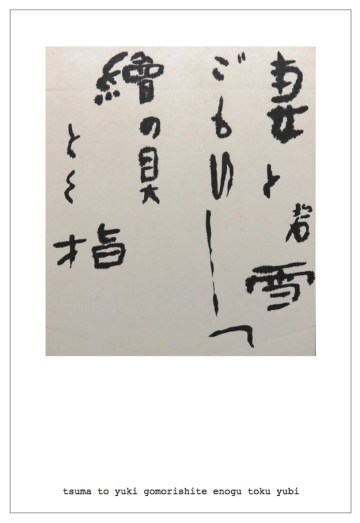 妻と雪
ごもりして
繪の具
とく指
tsuma to yuki gomorishite enogu toku yubi